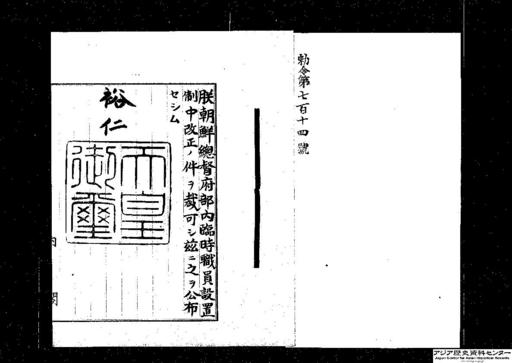 勅令第七百十四號
朕朝鮮總督府部內臨時職員設置
制中改正ノ件ヲ裁可シ茲ニ之ヲ公布
セシム
裕仁
天皇
御璽
内閣
アジア歴史資料センター
Japan Center for Asian Historical Records